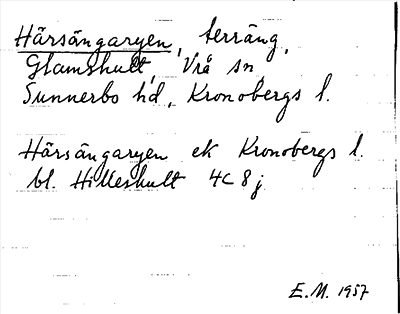 Härsängaryen, terräng,
Glamshult, Vrå sn
Sunnerbo hd, Kronobergs l.
Härsängaryen ek Kronobergs l.
bl. Hilleshult 4C 8 j
E.M. 1957